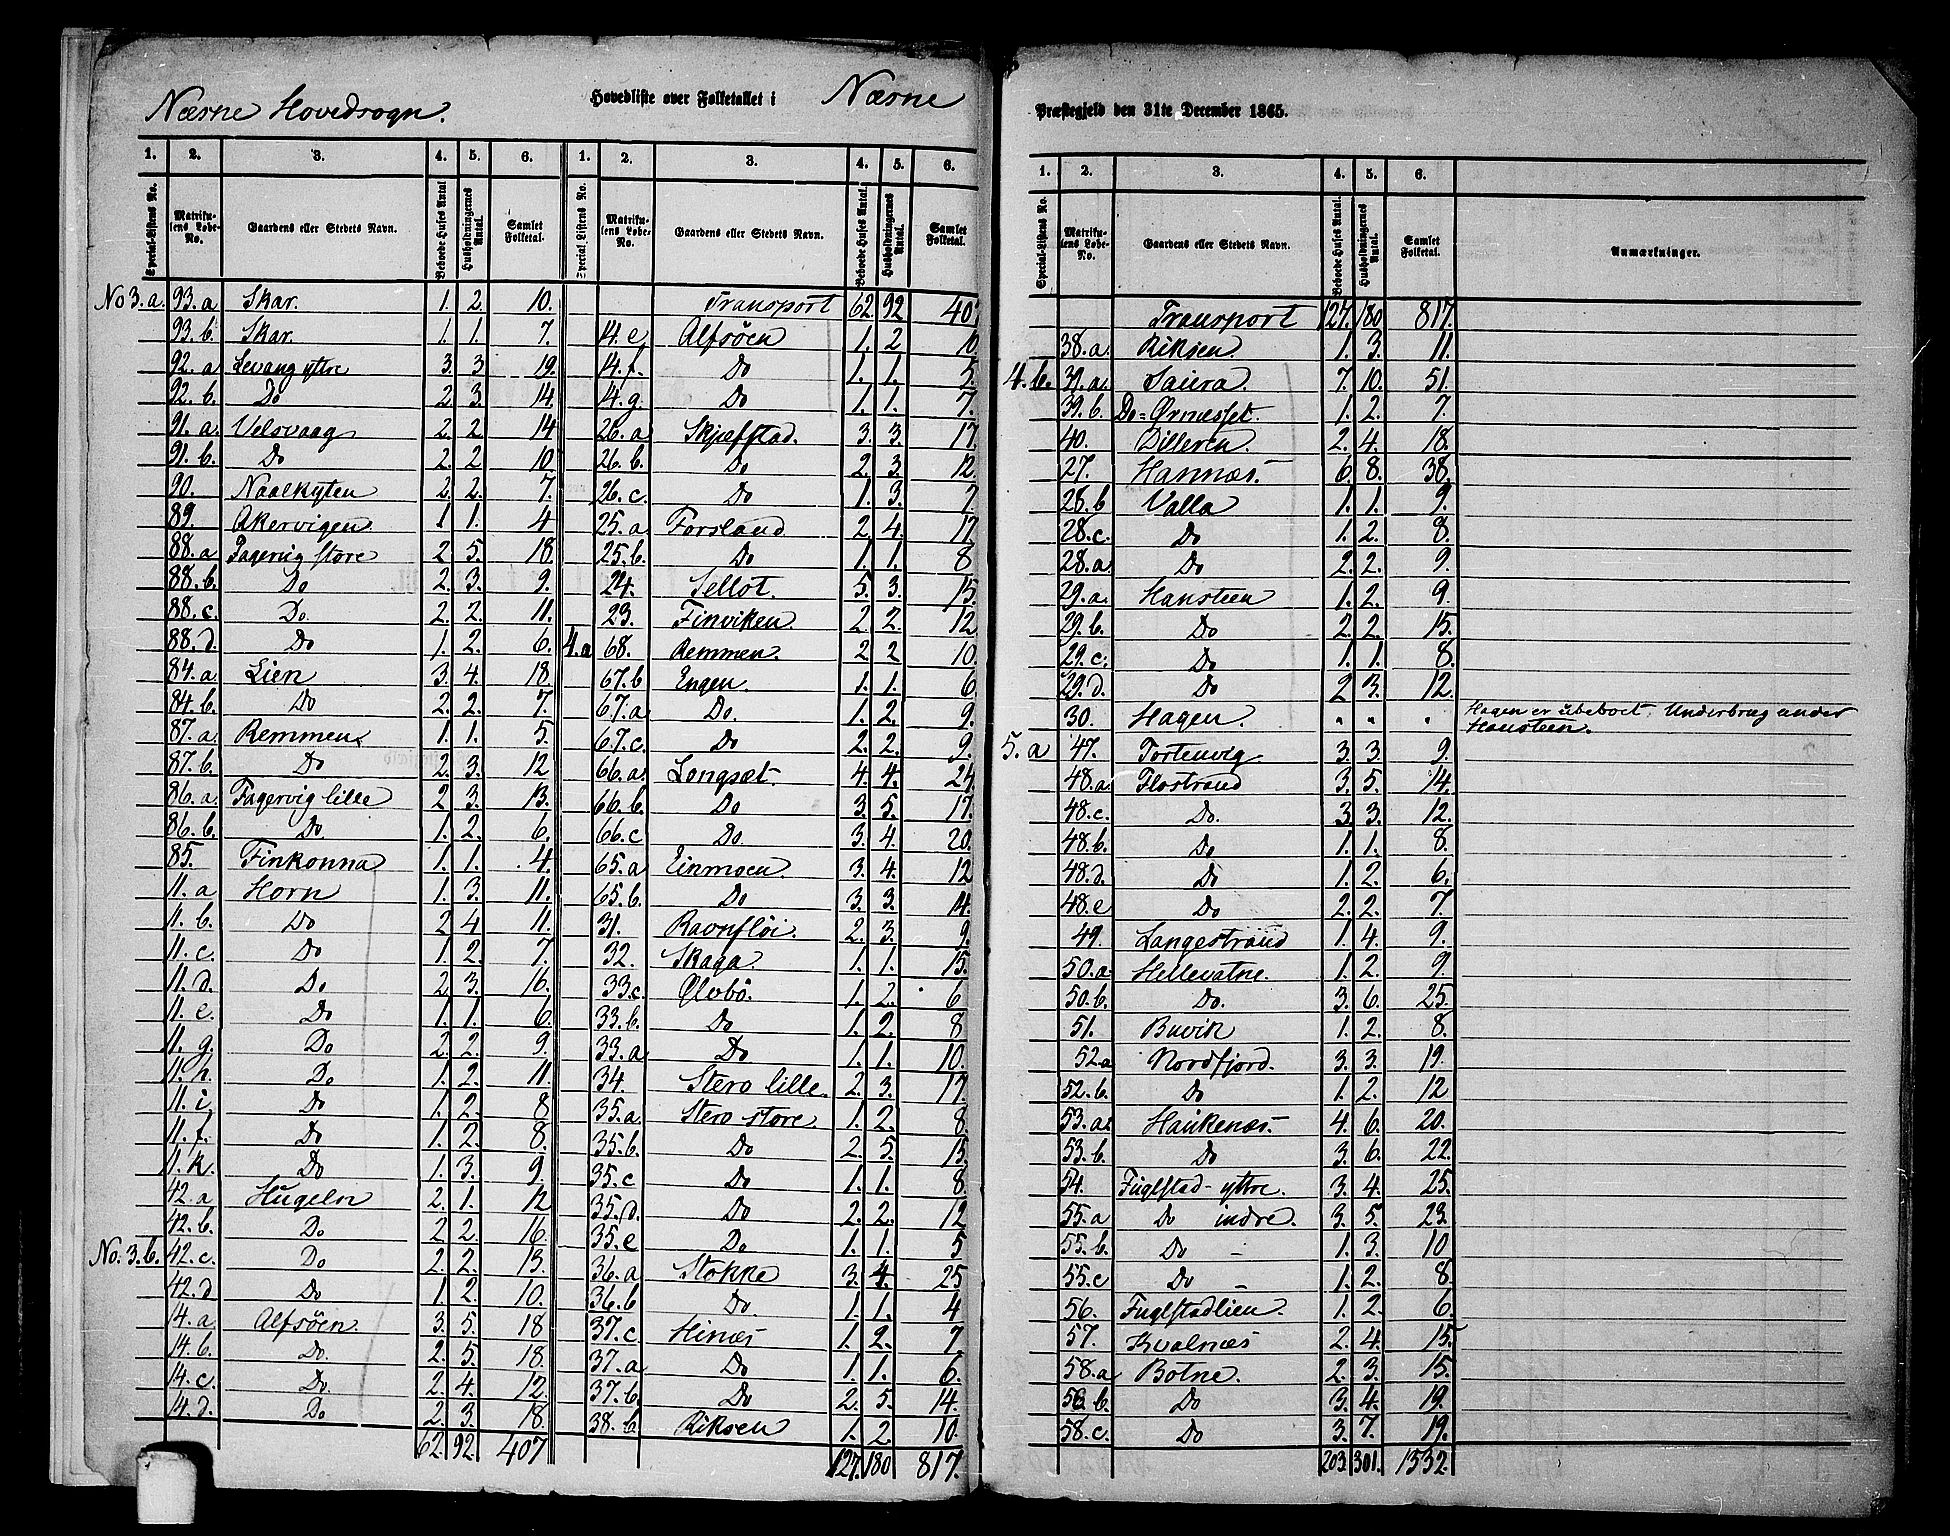 Næsne Hovedsogn.
Hovedliste over Folketallet i Næsne
Præstegjeld den 31te December 1865.
1. 2. 3. 4. 5. 6. 1. 2. 3. 4. 5. 6.
Special-Listens No. Matrikulens Løbe-No. Gaardens eller Stedets Navn. Beboede Huses Antal Husholdningernes Antal. Samlet Folketal. Special-Listens No. Matrikulens Løbe-No. Gaardens eller Stedets Navn. Beboede Huses Antal. Husholdningernes Antal. Samlet Folketal.
No 3.a. 93.a Skar. 1. 2. 10.
93.b. Skar. 1. 1. 7.
92.a Levang yttre 3. 3 19.
92.b. Do 2. 3. 14.
91.a Velsvaag 2. 2 14
91.b. Do 2. 2 10
90. Naalkyten 2. 2. 7.
89. Akervigen 1 1. 4
88.a Fagervig store 2 5. 18.
88.b. Do 2. 3. 9.
88.c. Do. 2. 2. 11.
88.d. Do 1. 2. 6.
84.a. Lien 3. 4. 18.
84.b. Do 2. 2. 7.
87.a. Remmen. 1. 1. 5.
87.b. Do 2. 3. 12
86.a. Fagervig lille 2 3. 13.
86.b. Do. 1. 2. 6.
85. Finkonna 1. 1. 4.
11.a Horn 1. 3. 11.
11.b. Do 2 4 11.
11.c. Do 1. 2. 7.
11.d. Do 2 3. 16.
11.e. Do 1. 1. 6.
11.g. Do 2. 2. 9.
11.h. Do 1. 2. 11.
11.i. Do 1. 2. 8
11.f. Do 1. 2. 8.
11.k. Do 1. 3. 9
42.a Hugeln 2. 1. 12
42.b. Do 2 2. 16.
No. 3.b. 42.c. Do 2. 2. 13.
42.d Do 1. 2. 10.
14.a. Alfsöen. 3. 5. 18
14.b. Do. 2. 5. 18.
14.c. Do 2. 4. 12.
14.d. Do 2. 3. 18.
62. 92. 407
Transport 62. 92 407
14.e. Alfsöen 1. 2 10
14.f. Do 1. 1. 5.
14.g. Do 1. 1. 7.
26.a Skjæfstad. 3. 3. 17.
26.b. Do 2. 3. 12
26.c. Do 1. 3. 7
25.a Forsland 2. 4. 17
25.b. Do 1. 1. 8
24. Sellot. 5. 3. 15.
23. Finviken. 2. 2. 12
4.a 68. Remmen. 2. 2 10.
67.b Engen. 1. 1. 6
67.a Do. 1. 2. 9.
67.c. Do 2. 2. 9.
66.a. Longsæt. 4. 4. 24
66.b. Do 3. 5. 17.
66.c Do. 3. 4. 20.
65.a Einmoen. 3. 4. 12
65.b. Do 3. 3. 14.
31. Ravnflöi. 2. 3. 9.
32. Skaga. 1. 1. 15.
33.c. Olvbö. 1. 2. 6
33.b. Do 1. 2. 8
33.a Do 1. 1. 10.
34. Stero lille. 2. 3. 17.
35.a. Stero store. 1. 2. 8.
35.b Do 2. 5. 15.
35.c Do 1. 1. 8.
35.d. Do 2. 2. 12
35.e Do 1. 1. 5
36.a Stokke 3. 4. 25
36.b Do. 1. 1. 4
37.c. Hinæs 1. 2. 7
37.a Do 1. 1. 6.
37.b Do 2. 5. 14.
38.b. Riksen 1. 2. 10.
127. 180 817.
1. 2. 3. 4. 5. 6.
Special-Listens No. Matrikulens Løbe-No. Gaardens eller Stedets Navn. Beboede Huses Antal. Husholdningernes Antal. Samlet Folketal. Anmærkninger.
Transport 127. 180 817.
38.a. Riksen. 1. 3. 11.
4.b. 39.a. Saura. 7. 10. 51.
39.b. Do = Ørnæsset. 1. 2. 7.
40. Dilleren. 2. 4. 18.
27. Hannæs. 6 8. 38.
28.b Valla 1. 1. 9.
28.c. Do 1. 2. 8.
28.a. Do 2. 2. 9.
29.a. Hansteen 1. 2. 9.
29.b. Do 2. 2. 15.
29.c. Do 1. 1. 8.
29.d. Do 2 3. 12.
30. Hagen. " " " Hagen er ubeboet. Underbrug under
Hansteen.
5.a 47. Tortenvig. 3. 3. 9.
48.a. Flostrand 3. 5. 14.
48.c. Do. 3. 3. 12.
48.b. Do 1. 1. 8.
48.d. Do 1. 2. 6.
48.e Do 2. 2. 7.
49. Langestrand 1. 4. 9.
50.a. Hellevatne. 1. 2. 9.
50.b. Do. 3. 6. 25.
51. Buvik 1. 2. 8.
52.a Nordfjord. 3. 3. 19.
52.b. Do 1. 2. 12
53.a. Haukenæs. 4. 6. 20.
53.b. Do 3. 6. 22.
54. Fuglstad-yttre. 3. 4. 25.
55.a Do indre. 3. 5. 23.
55.b. Do - 1. 3. 10
55.c Do - 1. 2. 8.
56. Fuglstadlien. 1. 2. 6.
57. Kvalnæs 2. 4. 15.
58.a Botne. 2. 3. 15.
58.b Do 3. 4. 19.
58.c. Do 3. 7. 19.
203. 301. 1332.